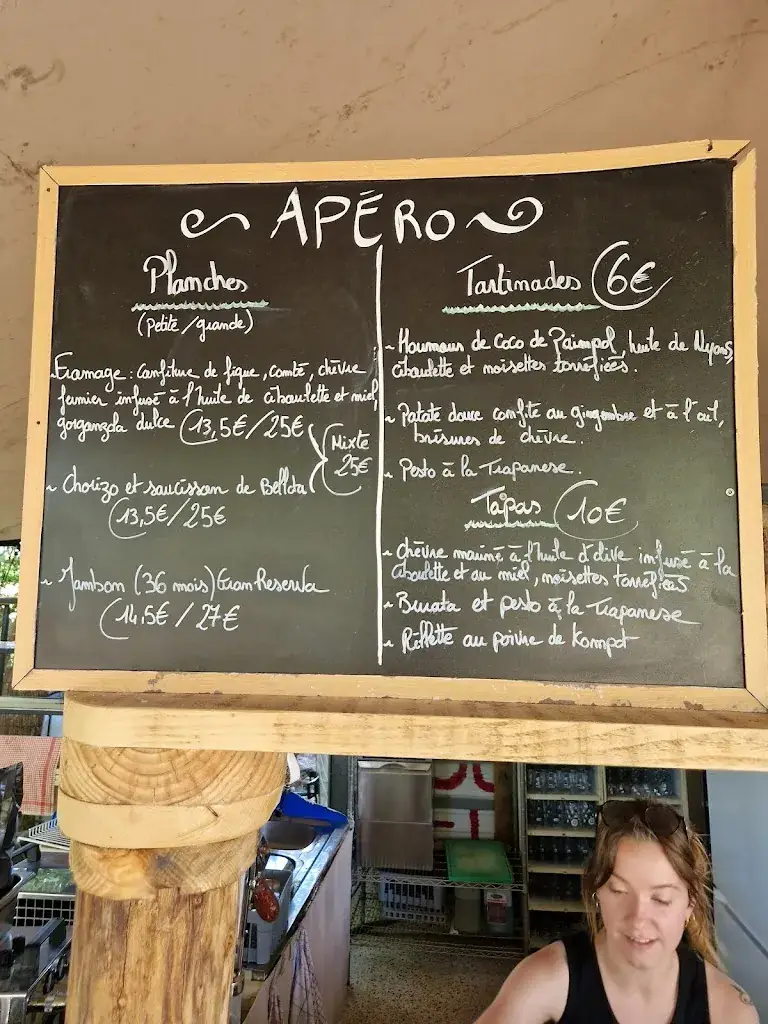 APÉRO
Planches
(petite/grande)
~ Fromage : confiture de figue, comté, chèvre
fermier infusé à l'huile de ciboulette et miel,
gorgonzola dulce 13,5€/25€
Mixte
25€
~ Chorizo et saucisson de Bellota
13,5€/25€
~ Jambon (36 mois) Gran Reserva
14,5€/27€
Tartinades 6€
~ Houmous de Coco de Paimpol, huile de Nyons,
ciboulette et noisettes torréfiées.
~ Patate douce confite au gingembre et à l'ail,
brisures de chèvre.
~ Pesto à la Trapanese.
Tapas 10€
~ Chèvre mariné à l'huile d'olive infusé à la
ciboulette et au miel, noisettes torréfiées
~ Burata et pesto à la Trapanese
~ Rillette au poivre de Kampot